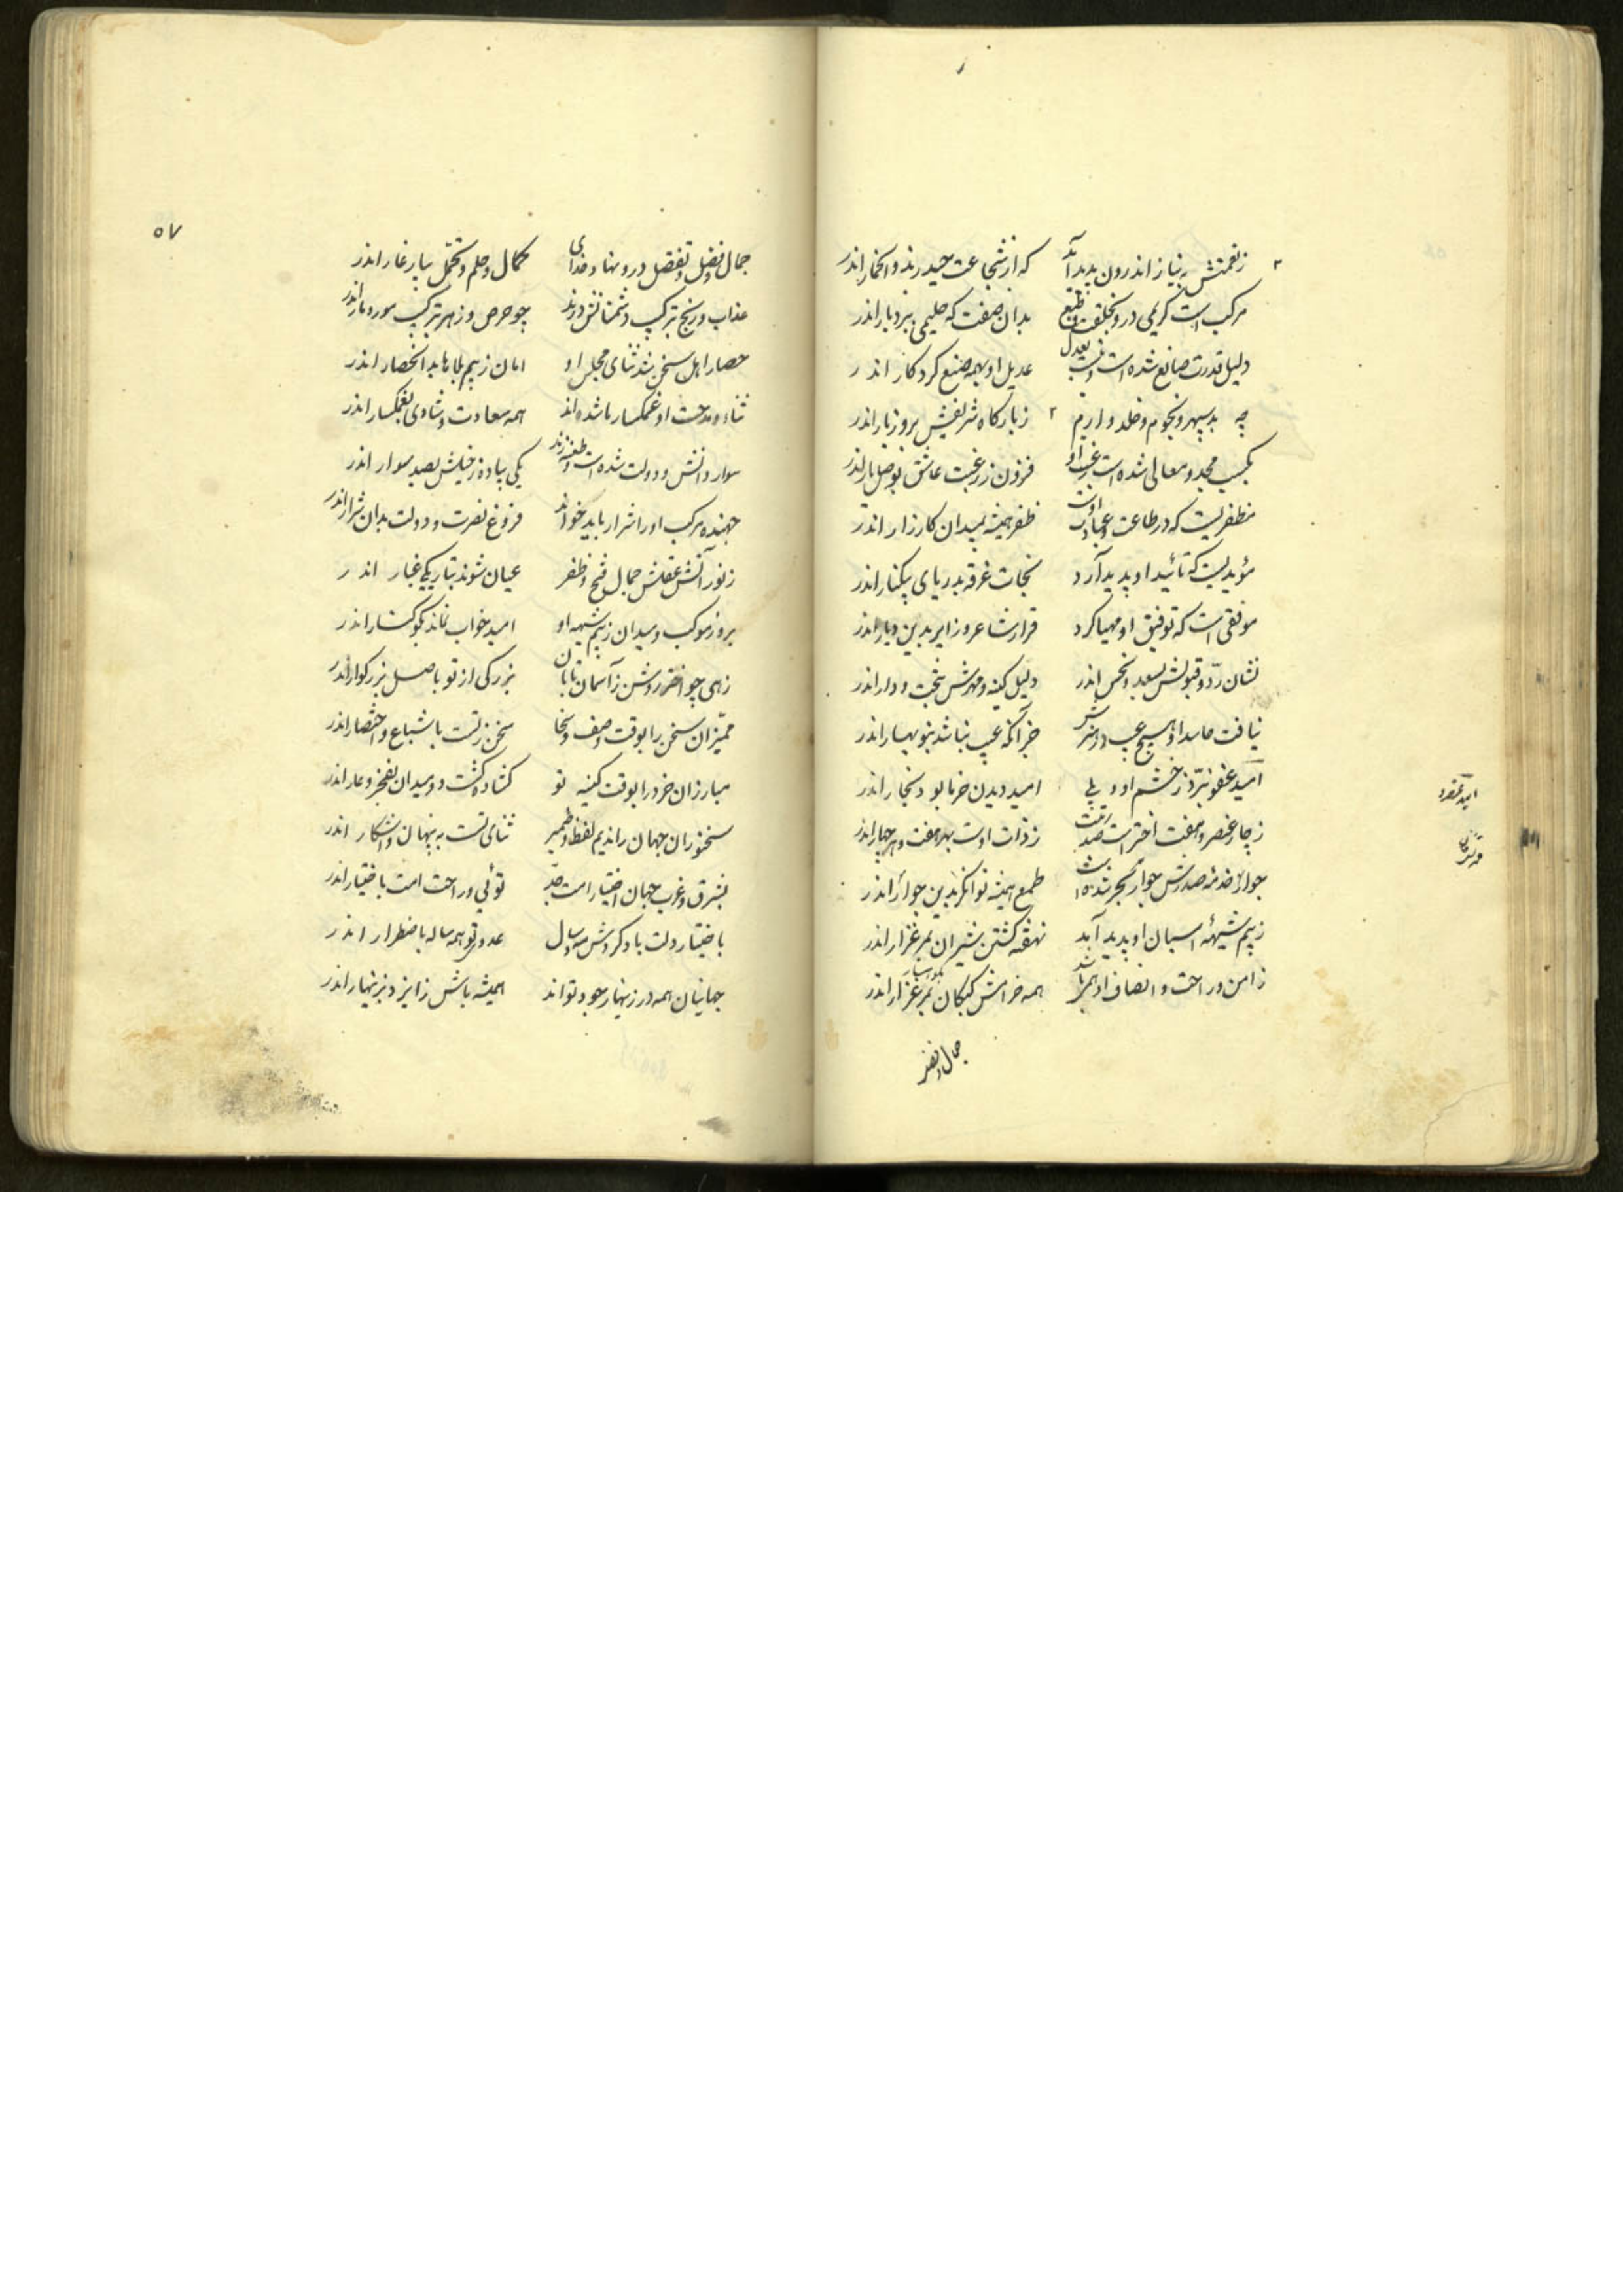 ز نعمتش به نیاز اندرون پدید آید که از شجاعت حیدر بذوالخمار اندر
مرکب است کریمی درو بخلقت و طبع بدان صفت که حلیمی ببردبار اندر
دلیل قدرت صانع شده است بعدل عدیل او بهمه صنع کردکار اندر
چه بد سپهر و نجوم و خلد و ارم زبارکاه شریفش بروزبار اندر
بکسب مجد و معالی شده است رغبت او فزون ز رغبت عاشق بوصل یار اندر
مظفریست که در طاعت و عبادت اوست ظفر همیشه بمیدان کارزار اندر
مؤیدیست که تائید او پدید آرد نجات غرقه بدریای بیکنار اندر
موفقی است که توفیق او مهیا کرد قرار شاعر و زایر بدین دیار اندر
نشان ردّ و قبولش بسعد و نحس اندر دلیل کینه و مهرش بتخت و دار اندر
نیافت حاسد او هیچ عیب در هنرش جز آنکه عیب نباشد بنوبهار اندر
امید عفو نبرّد ز خشم او ولی امید دیدن خرما بود بخار اندر
ز چار عنصر و هفت اختر است ز ذات اوست بهر هفت و هر چهار اندر
جواز خدمت صدرش جوار بحر شده است طمع همیشه توانگر بدین جوار اندر
ز بیم شیههٔ اسبان او پدید آید نهفته کشتن شیران بمرغزار اندر
ز امن و راحت و انصاف او همی باشد همه خرامش کبکان بمرغزار اندر
جمال و فضل
امید عفو
۵۷
جمال و فضل و تفضل درو نهاد خدای کمال و حلم و تحمل بیار غار اندر
عذاب و رنج بترکیب دشمنانش درند چو حرص و زهر بترکیب مور و مار اندر
حصار اهل سخن شد ثنای مجلس او امان ز بیم بلاها بد انحصار اندر
ثناء و مدحت او غمکسار ما شده اند همه سعادت و شادی بغمکسار اندر
سوار دانش و دولت شده است و طعنه زند یکی پیاده ز خیلش بصد سوار اندر
جهنده مرکب او را شرار باید خواند فروغ نصرت و دولت بدان شرار اندر
ز نور آتش عقلش جمال فتح و ظفر عیان شوند بتاریکی غبار اندر
بروز موکب و میدان ز بیم شیهه او امید خواب نماند بکوکنار اندر
زهی چو اختر روشن ز آسمان تابان بزرکی از تو باصل بزرکوار اندر
ممیّزان سخن را بوقت وصف و سخا سخن ز تست باشباع و اختصار اندر
مبارزان خرد را بوقت کینه تو کشاده کشت دو میدان بفخر و عار اندر
سخنوران جهان را ندیم لفظ و ضمیر ثنای تست به پنهان و آشکار اندر
بشرق و غرب جهان اختیار امت جدّ توئی و راحت امت باختیار اندر
باختیار دلت باد کردش مه و سال عدو تو همه ساله باضطرار اندر
جهانیان همه در زینهار جود تواند همیشه باش ز ایزد بزینهار اندر